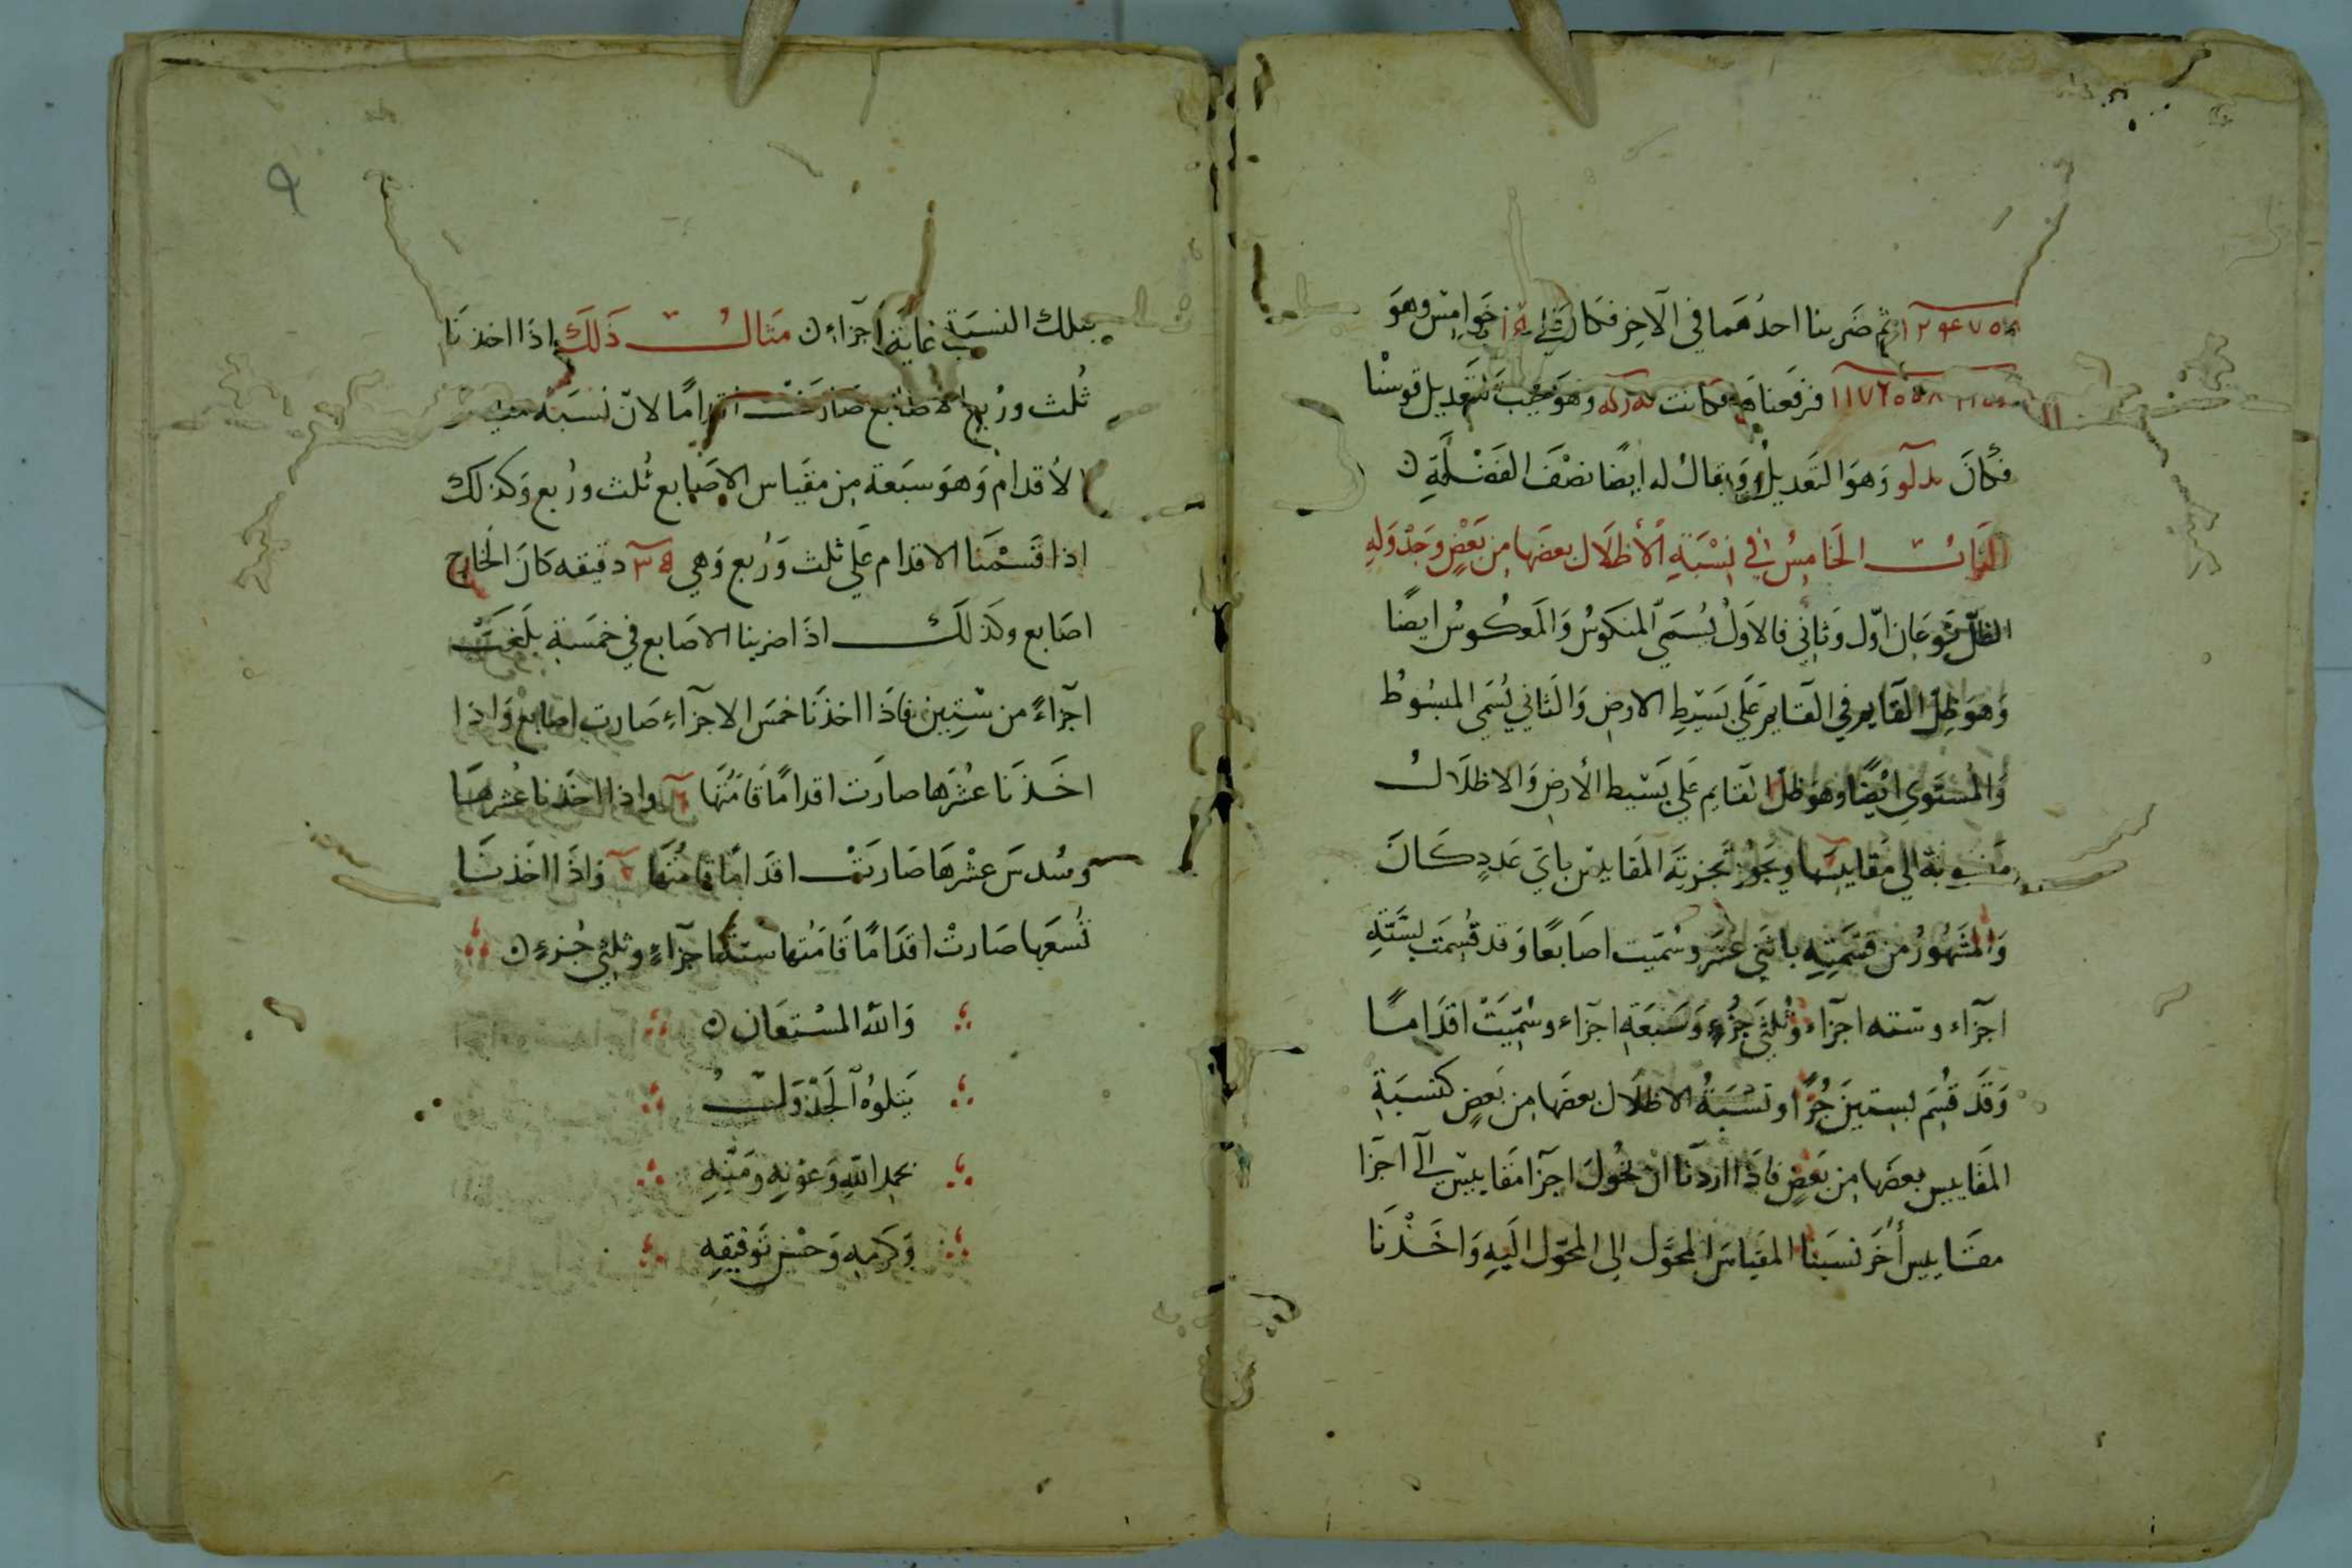 ثم ضربنا احدهما في الآخر فكان خوامس وهو
فرفعناها فكانت وهو جيب التعديل قوسنا
فكان وهو التعديل ويقال له ايضا نصف الفضلة
الباب الخامس في نسبة الأظلال بعضها من بعض وجدوله
الظل نوعان اول وثاني فالاول يسمى المنكوس والمعكوس ايضا
وهو ظل القايم في القايم على بسيط الارض والثاني يسمى المبسوط
والمستوي ايضا وهو ظل القايم على بسيط الأرض والاظلال
منسوبة الى مقاييسها ويجوز تجزية المقاييس باي عدد كان
والمشهور من قسمته باثني عشر وسميت اصابعا وقد قسمت بستة
اجزاء وسته اجزاء وثلثي جزء وسبعة اجزاء وسميت اقداما
وقد قسم بستين جزا ونسبة الاظلال بعضها من بعض كنسبة
المقاييس بعضها من بعض فاذا اردنا ان نحول اجزا مقاييس الى اجزا
مقاييس أخر نسبنا المقياس المحول الى المحول اليه واخذنا
٩
بتلك النسبة اجزاء مثال ذلك اذا اخذنا
ثلث وربع الاصابع صارت اقداما لان نسبة
الاقدام وهو سبعة من مقياس الاصابع ثلث وربع وكذلك
اذا قسمنا الاقدام على ثلث وربع وهي ٣٥ دقيقه كان الخارج
اصابع وكذلك اذا ضربنا الاصابع في خمسة بلغت
اجزاء من ستين فاذا اخذنا خمس الاجزاء صارت اصابع واذا
اخذنا عشرها صارت اقداما قامتها ٦ واذا اخذنا عشرها
وسدس عشرها صارت اقداما قامتها ٧ واذا اخذنا
تسعها صارت اقداما قامتها ستة اجزاء وثلثي جزء
والله المستعان
يتلوه الجدول
بحمد الله وعونه ومنه
وكرمه وحسن توفيقه